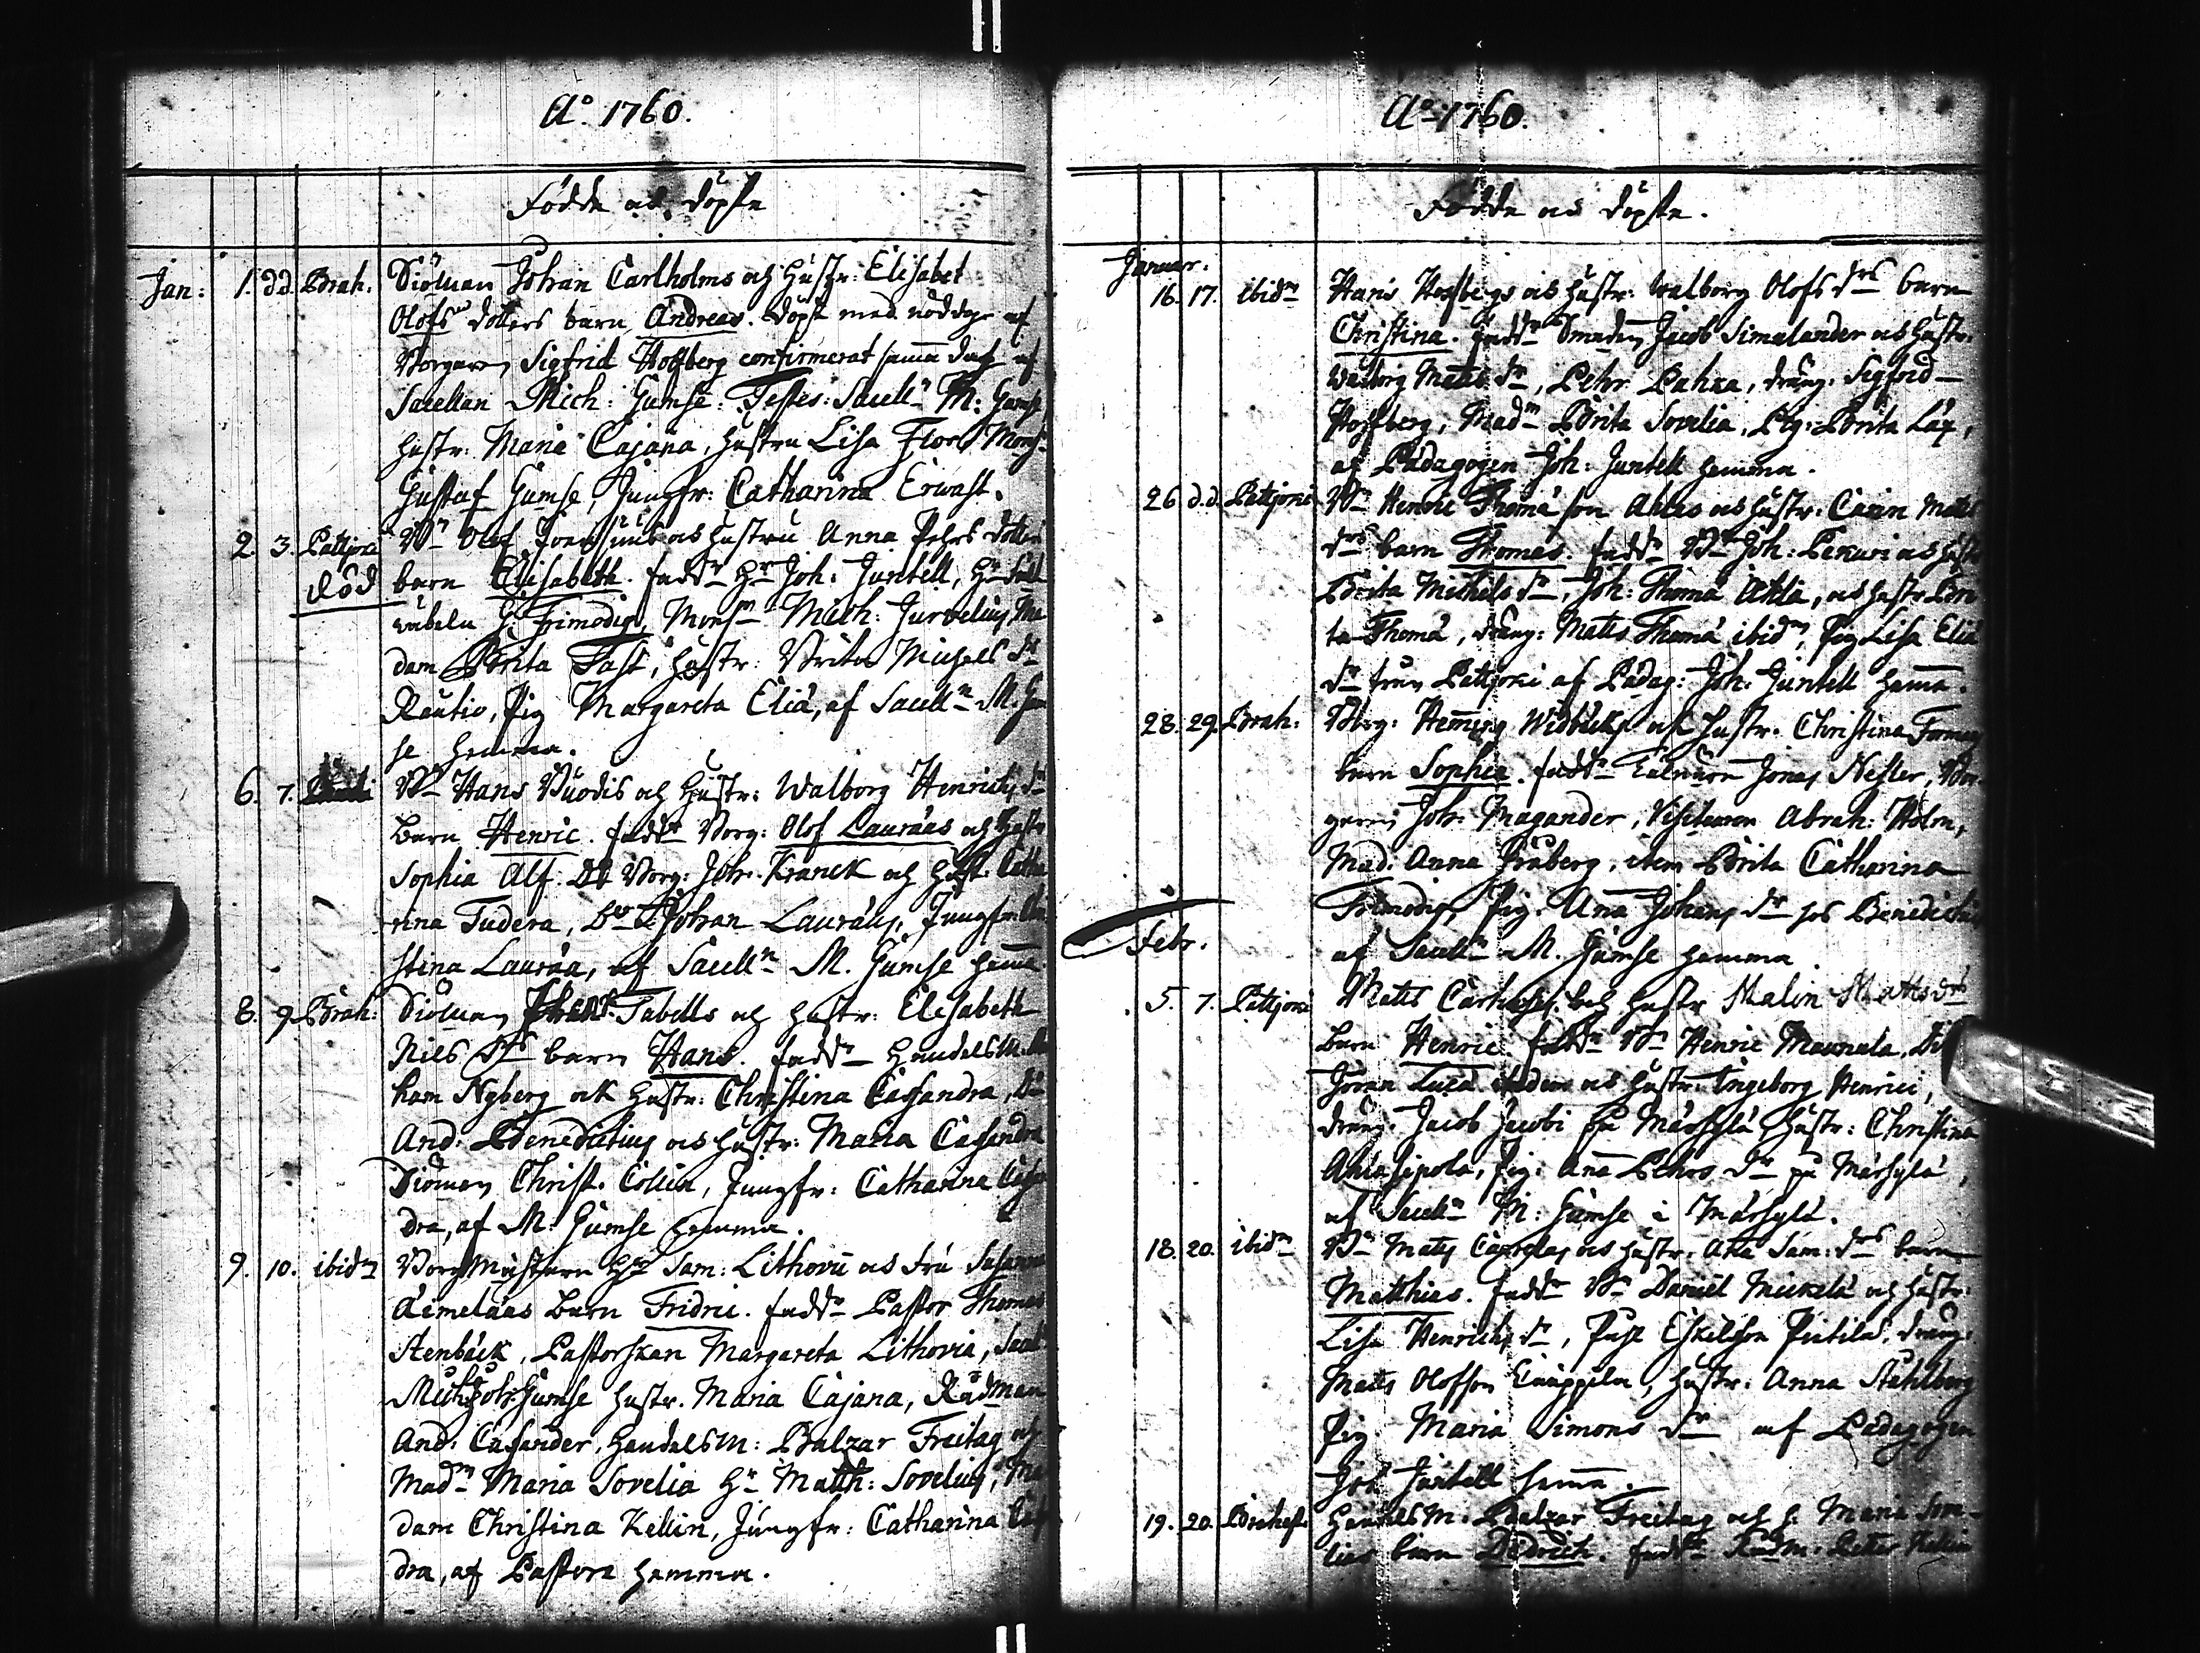 Ao. 1760.
Födde och döpte
Jan: 1. dd. Brah. Siöman Johan Carlholms och Hustr: Elisabet
Olofs dotters barn Andreas. döpt med nöddop af
Borgaren Sigfrid Hoffberg confirmerat samma dag af
Sacellan Mich: Gumse. Testes: Sacelln M: Gumse
hustr: Maria Cajana, hustru Lisa Flor Mons:
Gustaf Gumse, Jungfr: Catharina Erwast.
2. 3. Pattjoki Bn Olof och hustru Anna Pehrs dotters
död barn Elisabeth. fadd. Hr Joh: Juntell, Hr Fält
wäbeln G. Frimodig, Monsr Mich: Jurvelius, Ma
dam Brita Fast, hustr: Brita Michels dr
Rautio, Pig Margareta Eliä, af Sacelln M. Gum
se hemma.
6. 7. Bn Hans Buodis och Hustr: Walborg Henrichs dr
Barn Henric. fadd. Borg: Olof Lauræus och Hustr
Sophia Alf. Borg: Joh: Kranck och Hust: Catha
rina Tudera, Johan Lauræus, Jungfr. Chri
stina Lauræa, af Sacelln M. Gumse hemma
8. 9. Brah: Siöman Tabells och hustr: Elisabeth
Nils drs barn Hans. fadd. HandelsM.
ham Nyberg och Hustr: Christina Casandra,
And: Benedictius och Hustr: Maria Casandra
Siöman Christ. Collin, Jungfr: Catharina Casan
dra, af M: Gumse hemma.
9. 10. ibidm BorgMästaren Hr Sam: Lithovii och Fru Susanna
Aimelæas Barn Fridric. fadd. Pastor Thomas
Stenbäck, Pastorskan Margareta Lithovia, Sacel
Mich: Gumse hustr. Maria Cajana, Rådman
And: Casander, HandelsM: Balzar Freitag och
Madm Maria Sovelia Hr Matth: Sovelius, Ma
dam Christina Kellin, Jungfr: Catharina Casan
dra, af Pastore hemma.
Ao 1760.
Födde och döpte.
Januar.
16. 17. ibidm Hans Hoffbergs och hustr: Walborg Olofs drs barn
Christina. fadd. Smeden Jacob Simelander och hustr.
Walborg Matts dr, Pehr Pahka, dräng: Sigfrid
Hoffberg, Madm Brita Sovelia, Pig: Brita Lax,
af Pædagogen Joh: Juntell hemma.
26 d.d. Pattjoki Bn Henric Thomæ son Ahlas och Hustr: Carin Matts
drs barn Thomas. fadd. Bn Joh: Pekuri och hustr
Brita Michels dr, Joh: Thomæ Ahla, och hustr Bri
ta Thomæ, dräng: Matts Thomæ ibidm, Pig Lisa Eliæ
dr från Pattjoki af Pædag: Joh: Juntell hemma.
28. 29. Brah: Borg: Hennigs Widbäcks och hustr. Christina Forman
barn Sophia. fadd. Tulnären Jonas Nesler, Bor
garen Joh: Magander, Visiteuren Abrah: Holm,
Mad: Anna Fruberg, item Brita Catharina
Frimodig, Pig: Anna Johans dr hos Benedictius
Febr. af Sacelln M. Gumse hemma.
5. 7. Pattjoki Matts och hustr Malin Matts drs
barn Henric. fadd. Bn Henric Maunula,
Jöran Luca och hustr: Ingeborg Henrici,
dräng: Jacob Jacobi på Märsylä, hustr: Christina
Ahlasipola, Pig: Anna Pehrs dr på Märsylä,
af Sacelln M: Gumse i Märsylä.
18. 20. ibidm Bn Matts och Hustr. Sam: drs barn
Matthias. fadd. Bn Daniel Mickelä och hustr:
Lisa Henrichs dr, Eskelson dräng:
Matts Olofson hustr: Anna Stahlberg
Pig Maria Simons dr af Pædagogen
Joh Juntell hemma.
19. 20. HandelsM: Balzar Freitag och h: Maria Sove
lias barn Didrich. fadd. Rådm: Peter Kellin